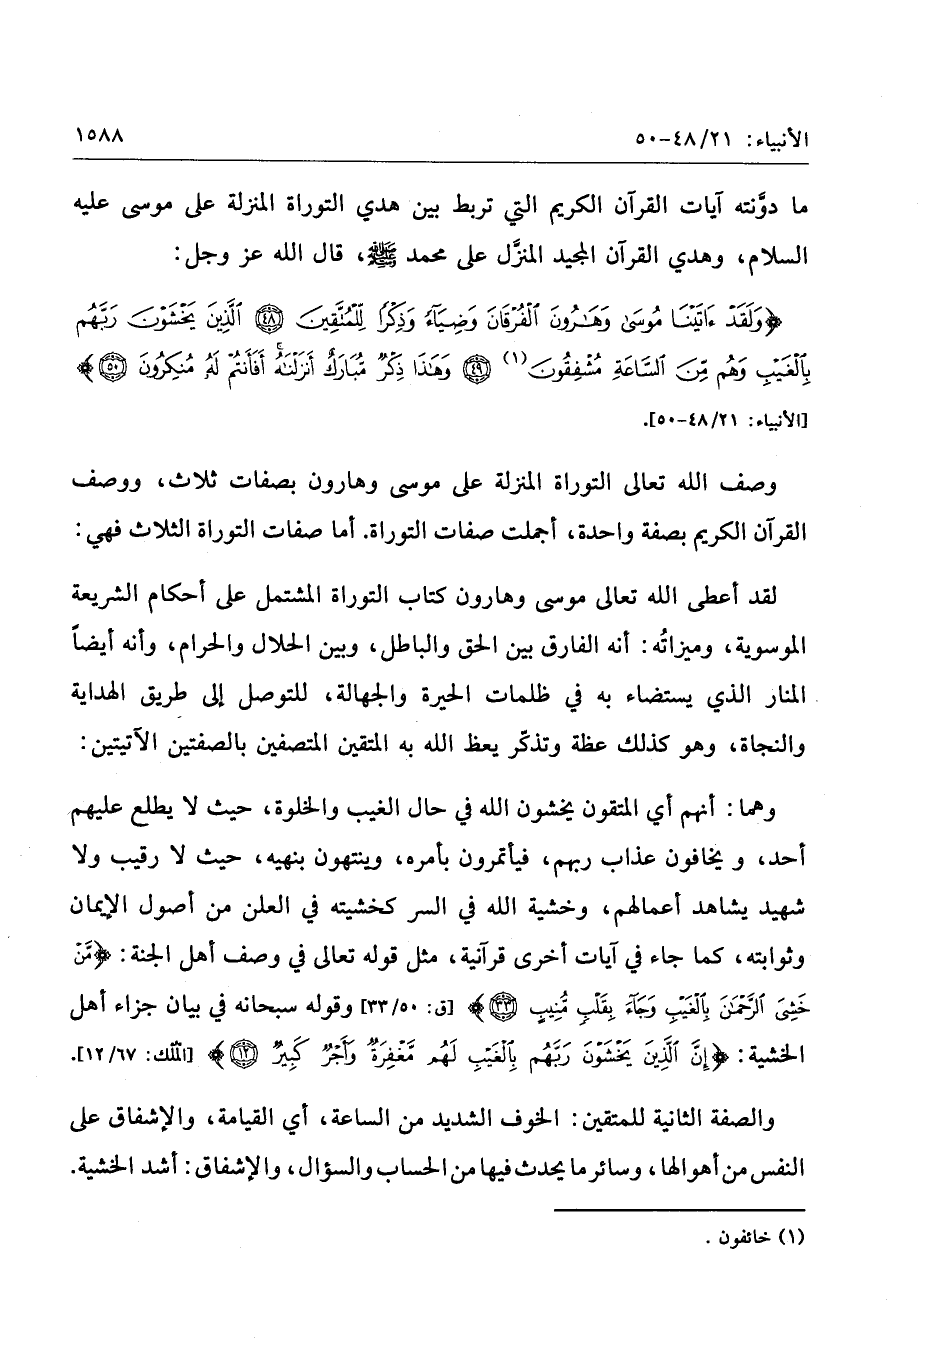 الأنبياء: ٤٨/٢١-٥٠ ١٥٨٨
ما دوَّنته آيات القرآن الكريم التي تربط بين هدي التوراة المنزلة على موسى عليه
السلام، وهدي القرآن المجيد المنزَّل على محمد ﷺ، قال الله عز وجل:
﴿وَلَقَدْ ءَاتَيْنَا مُوسَىٰ وَهَٰرُونَ ٱلْفُرْقَانَ وَضِيَآءً وَذِكْرًا لِّلْمُتَّقِينَ ٤٨ ٱلَّذِينَ يَخْشَوْنَ رَبَّهُم
بِٱلْغَيْبِ وَهُم مِّنَ ٱلسَّاعَةِ مُشْفِقُونَ(١) ٤٩ وَهَٰذَا ذِكْرٌ مُّبَارَكٌ أَنزَلْنَٰهُ ۚ أَفَأَنتُمْ لَهُۥ مُنكِرُونَ ٥٠﴾
[الأنبياء: ٤٨/٢١-٥٠].
وصف الله تعالى التوراة المنزلة على موسى وهارون بصفات ثلاث، ووصف
القرآن الكريم بصفة واحدة، أجملت صفات التوراة. أما صفات التوراة الثلاث فهي:
لقد أعطى الله تعالى موسى وهارون كتاب التوراة المشتمل على أحكام الشريعة
الموسوية، وميزاتُه: أنه الفارق بين الحق والباطل، وبين الحلال والحرام، وأنه أيضاً
المنار الذي يستضاء به في ظلمات الحيرة والجهالة، للتوصل إلى طريق الهداية
والنجاة، وهو كذلك عظة وتذكّر يعظ الله به المتقين المتصفين بالصفتين الآتيتين:
وهما: أنهم أي المتقون يخشون الله في حال الغيب والخلوة، حيث لا يطلع عليهم
أحد، و يخافون عذاب ربهم، فيأتمرون بأمره، وينتهون بنهيه، حيث لا رقيب ولا
شهيد يشاهد أعمالهم، وخشية الله في السر كخشيته في العلن من أصول الإيمان
وثوابته، كما جاء في آيات أخرى قرآنية، مثل قوله تعالى في وصف أهل الجنة: ﴿مَّنْ
خَشِىَ ٱلرَّحْمَٰنَ بِٱلْغَيْبِ وَجَآءَ بِقَلْبٍ مُّنِيبٍ ٣٣﴾ [ق: ٣٣/٥٠] وقوله سبحانه في بيان جزاء أهل
الخشية: ﴿إِنَّ ٱلَّذِينَ يَخْشَوْنَ رَبَّهُم بِٱلْغَيْبِ لَهُم مَّغْفِرَةٌ وَأَجْرٌ كَبِيرٌ ١٢﴾ [الملك: ١٢/٦٧].
والصفة الثانية للمتقين: الخوف الشديد من الساعة، أي القيامة، والإشفاق على
النفس من أهوالها، وسائر ما يحدث فيها من الحساب والسؤال، والإشفاق: أشد الخشية.
(١) خائفون .